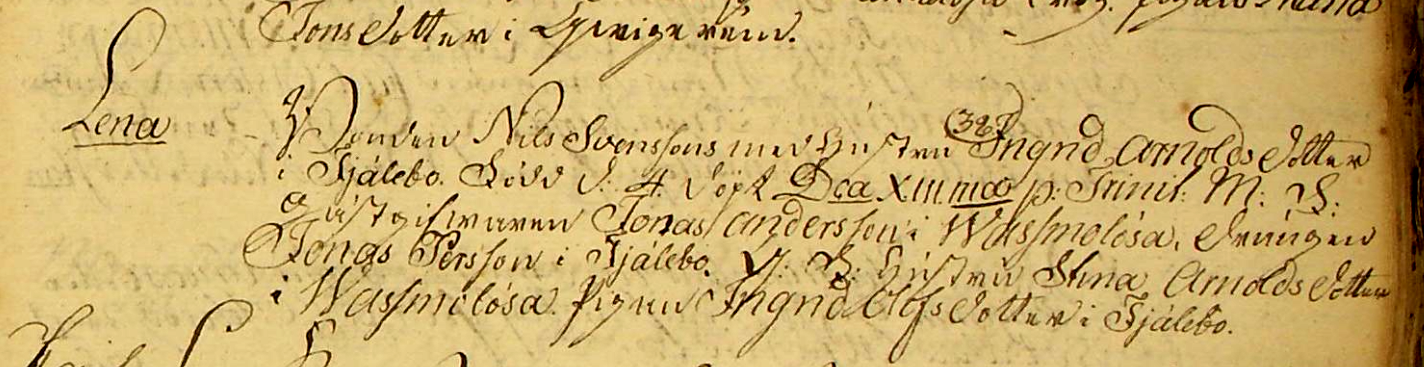 Jons Dotter i
Lena
Bonden Nils Svenssons med Hustru (38.) Ingrid Arnolds Dotter
i Fjälebo. Född d. 4. döpt Dca XIII.ma p: Trinit: M: V:
Gästgifwaren Jonas Andersson i Wassmolösa. Drängen
Jonas Persson i Fjälebo. Q: V: Hustru Stina Arnolds Dotter
i Wassmolösa. Pigan Ingrid Olofs Dotter i Fjälebo.